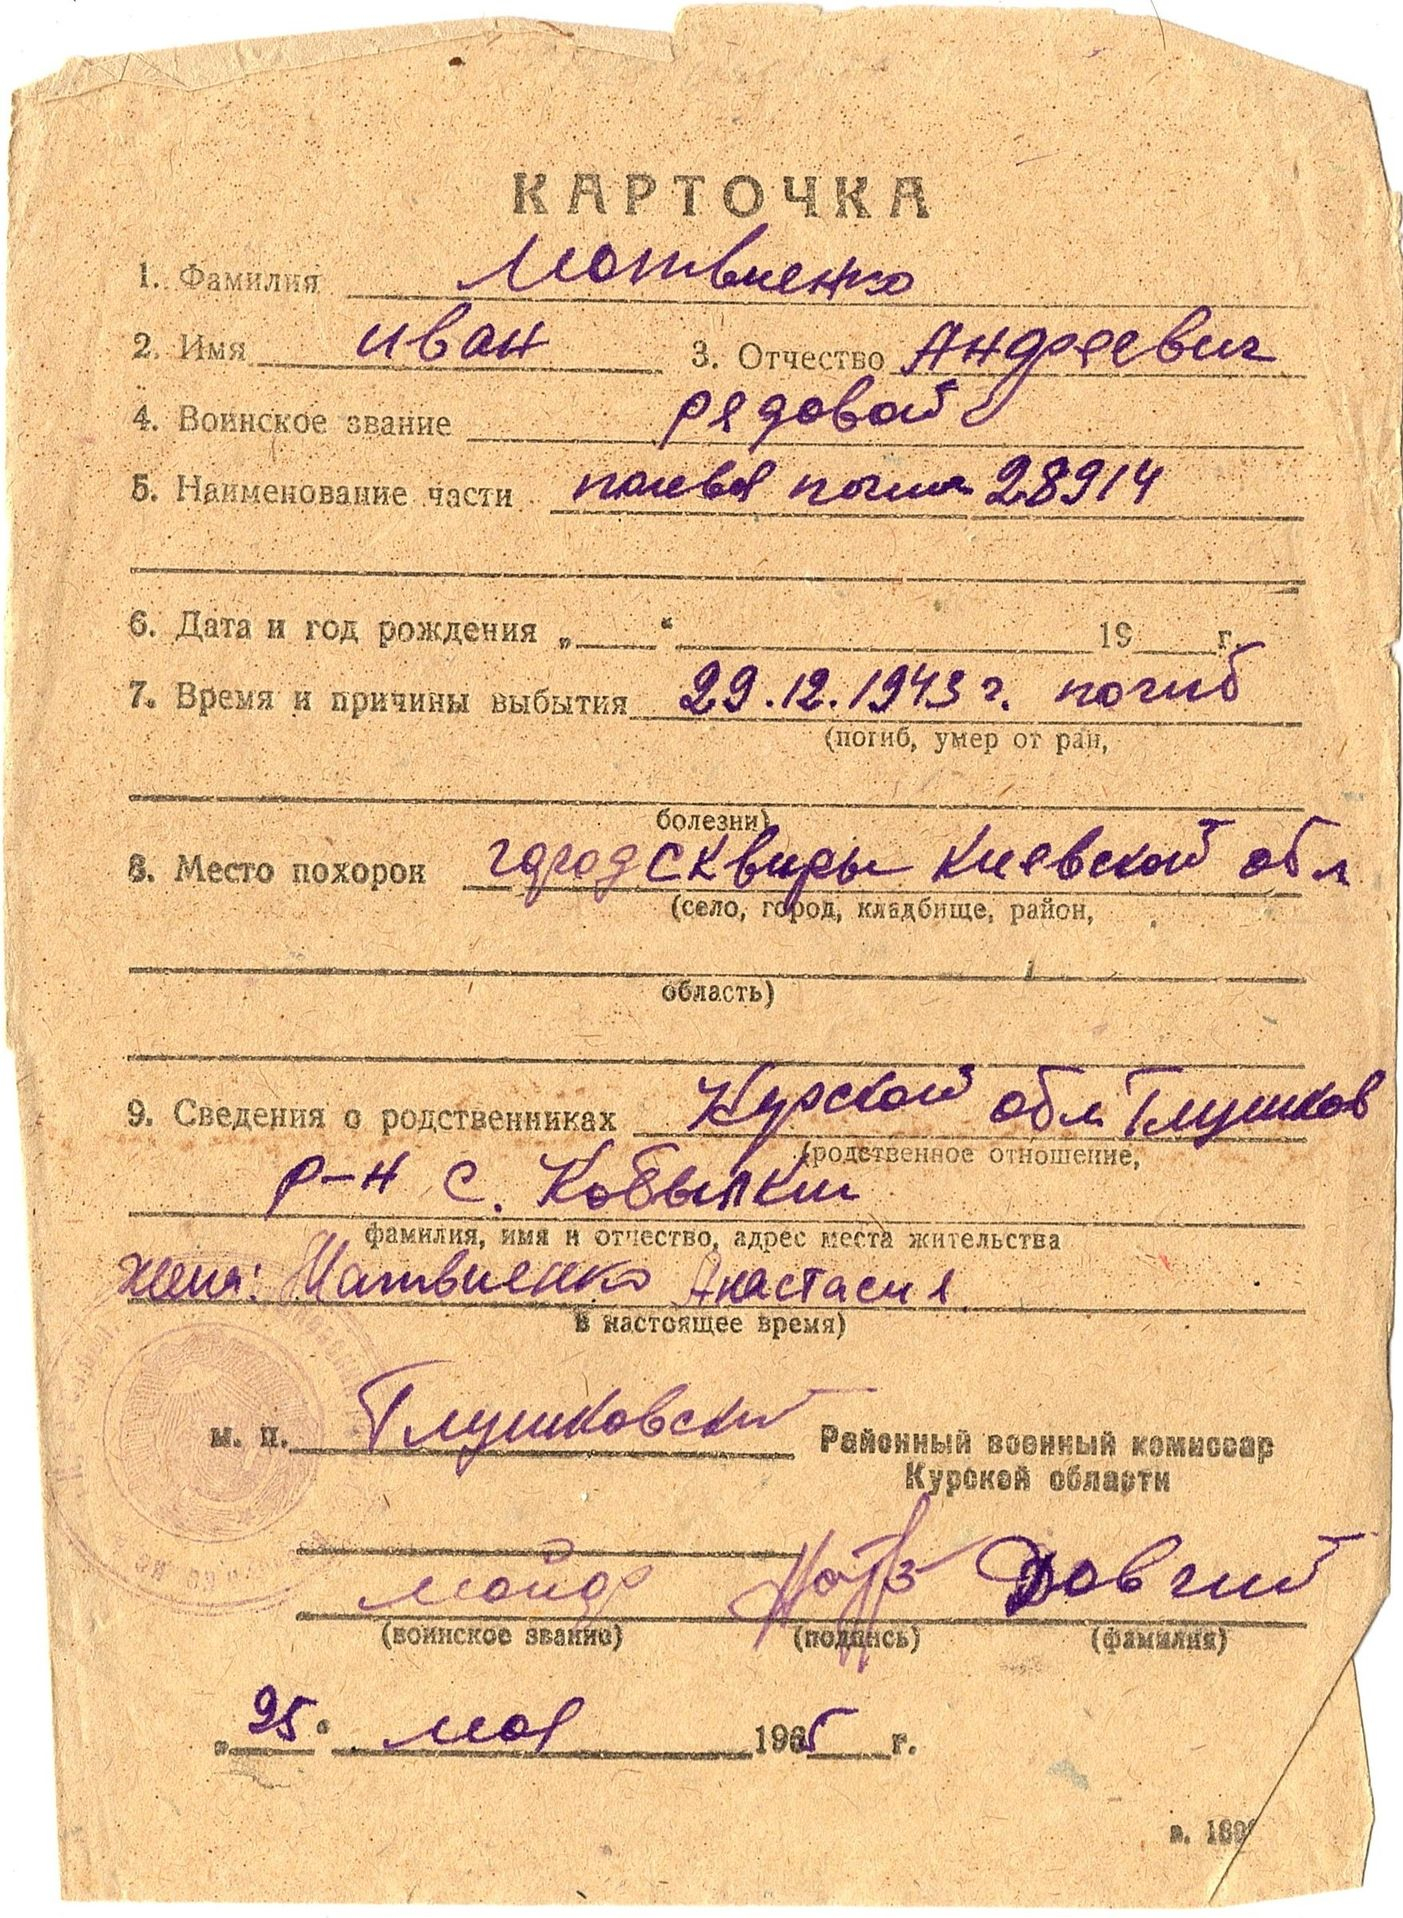 КАРТОЧКА
1. Фамилия Матвиенко
2. Имя Иван 3. Отчество Андреевич
4. Воинское звание рядовой
5. Наименование части полевая почта 28914
6. Дата и год рождения „ “ 19 г.
7. Время и причины выбытия 29.12.1943 г. погиб
(погиб, умер от ран,
болезни)
8. Место похорон город Сквиры Киевской обл
(село, город, кладбище, район,
область)
9. Сведения о родственниках Курской обл Глушков
(родственное отношение,
р-н с. Кобылки
фамилия, имя и отчество, адрес места жительства
жена: Матвиенко Анастасия
в настоящее время)
м. п. Глушковский Районный военный комиссар
Курской области
майор Довгий
(воинское звание) (подпись) (фамилия)
„25“ мая 1965 г.